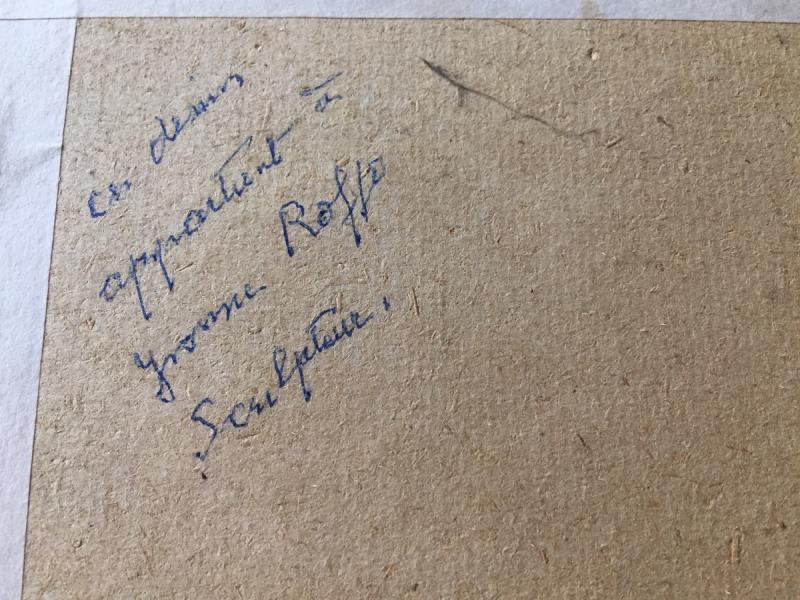 ce dessin
appartient à
Yvonne Roffo
Sculpteur.